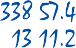 338 57.4
13 11.2